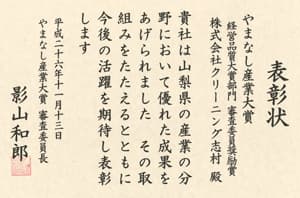 表彰状
やまなし産業大賞
経営品質大賞部門 審査委員奨励賞
株式会社クリーニング志村 殿
貴社は山梨県の産業の分
野において優れた成果を
あげられました その取
組みをたたえるとともに
今後の活躍を期待し表彰
します
平成二十六年十一月十三日
やまなし産業大賞 審査委員長
影山和郎